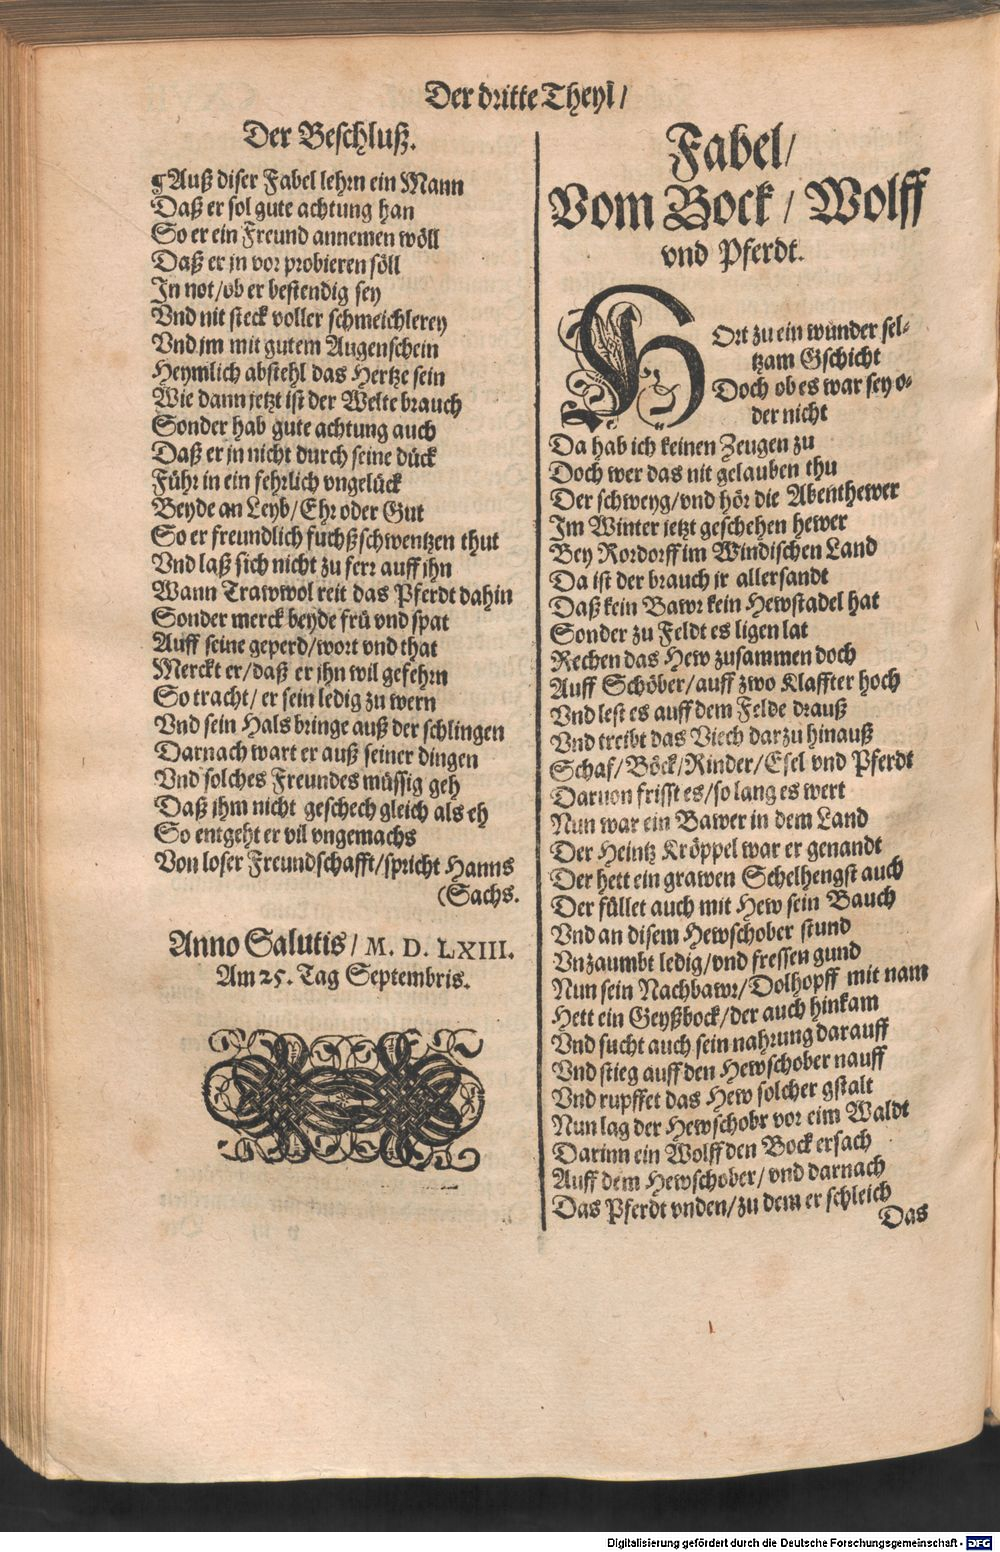 Der dritte Theyl /
Der Beschluß.
¶ Auß diser Fabel lehrn ein Mann
Daß er sol gute achtung han
So er ein Freund annemen wöll
Daß er jn vor probieren söll
In not / ob er bestendig sey
Vnd nit steck voller schmeichlerey
Vnd jm mit gutem Augenschein
Heymlich abstehl das Hertze sein
Wie dann jetzt ist der Welte brauch
Sonder hab gute achtung auch
Daß er jn nicht durch seine dück
Führ in ein fehrlich vngelück
Beyde an Leyb / Ehr oder Gut
So er freundlich fuchßschwentzen thut
Vnd laß sich nicht zu ferr auff jhn
Wann Trawwol reit das Pferdt dahin
Sonder merck beyde frü vnd spat
Auff seine geperd / wort vnd that
Merckt er / daß er jhn wil gefehrn
So tracht / er sein ledig zu wern
Vnd sein Hals bringe auß der schlingen
Darnach wart er auß seiner dingen
Vnd solches Freundes müssig geh
Daß jhm nicht geschech gleich als eh
So entgeht er vil vngemachs
Von loser Freundschafft / spricht Hanns
(Sachs.
Anno Salutis / M. D. LXIII.
Am 25. Tag Septembris.
Fabel /
Vom Bock / Wolff
vnd Pferdt.
HOrt zu ein wunder sel-
tzam Gschicht
Doch ob es war sey o-
der nicht
Da hab ich keinen Zeugen zu
Doch wer das nit gelauben thu
Der schweyg / vnd hör die Abenthewer
Im Winter jetzt geschehen hewer
Bey Rordorff im Windischen Land
Da ist der brauch jr allersandt
Daß kein Bawr kein Hewstadel hat
Sonder zu Feldt es ligen lat
Rechen das Hew zusammen doch
Auff Schöber / auff zwo Klaffter hoch
Vnd lest es auff dem Felde drauß
Vnd treibt das Viech darzu hinauß
Schaf / Böck / Rinder / Esel vnd Pferdt
Daruon frisst es / so lang es wert
Nun war ein Bawer in dem Land
Der Heintz Kröppel war er genandt
Der hett ein grawen Schelhengst auch
Der füllet auch mit Hew sein Bauch
Vnd an disem Hewschober stund
Vnzaumbt ledig / vnd fressen gund
Nun sein Nachbawr / Dolhopff mit nam
Hett ein Geyßbock / der auch hinkam
Vnd sucht auch sein nahrung darauff
Vnd stieg auff den Hewschober nauff
Vnd rupffet das Hew solcher gstalt
Nun lag der Hewschobr vor eim Waldt
Darinn ein Wolff den Bock ersach
Auff dem Hewschober / vnd darnach
Das Pferdt vnden / zu dem er schleich
Das
Digitalisierung gefördert durch die Deutsche Forschungsgemeinschaft - DFG